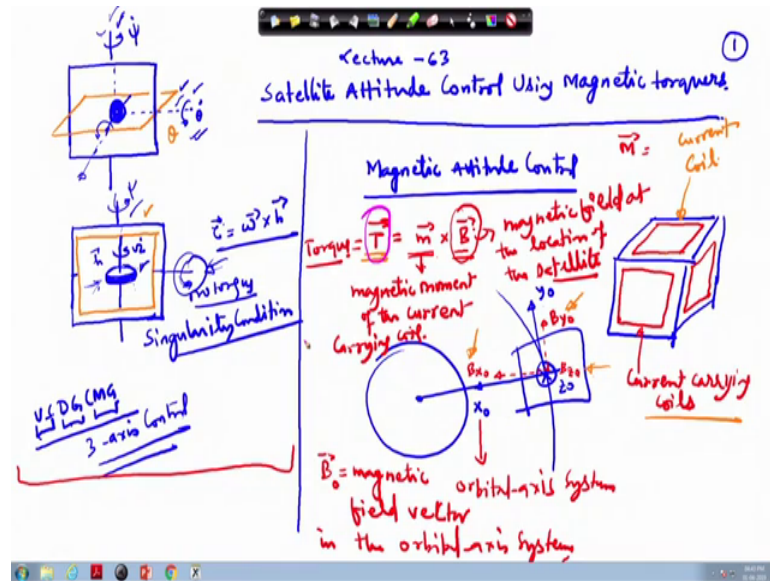 Lecture - 63
1
Satellite Attitude Control Using Magnetic torquers.
ψ̇
θ̇
θ
φ
ψ
h⃗
τ⃗ = ω⃗ × h⃗
no torque
Singularity Condition
DG CMG
3-axis Control
Magnetic Attitude Control
Torque = T⃗ = m⃗ × B⃗
magnetic field at
the location of
the satellite
magnetic moment
of the current
carrying coil.
m⃗ =
current
coil
Current carrying
coils
y₀
By₀
Bx₀
Bz₀
x₀
z₀
orbital-axis system
B⃗₀ = magnetic
field vector
in the orbital-axis system